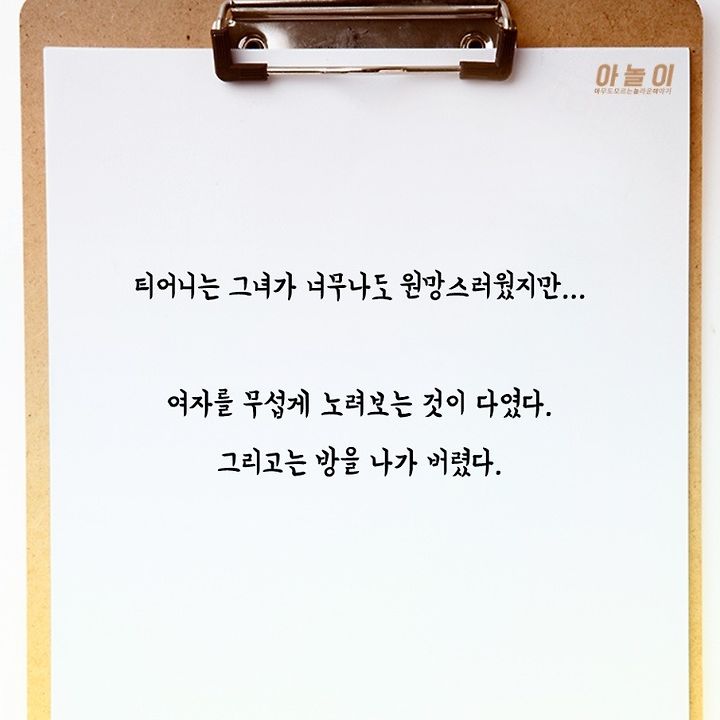 아놀이
아무도모르는놀라운이야기
티어니는 그녀가 너무나도 원망스러웠지만...
여자를 무섭게 노려보는 것이 다였다.
그리고는 방을 나가 버렸다.